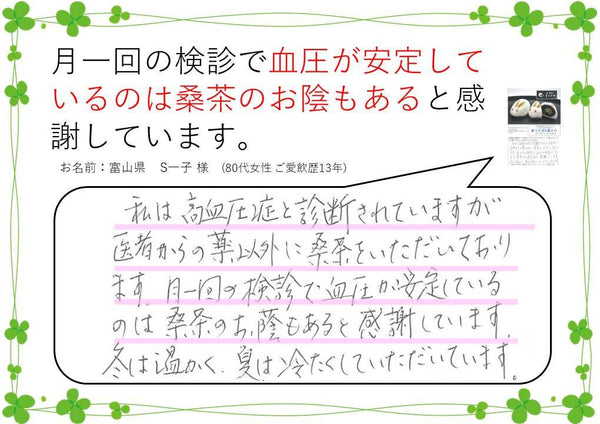 月一回の検診で血圧が安定して
いるのは桑茶のお陰もあると感
謝しています。
お名前：富山県　S一子 様　（80代女性 ご愛飲歴13年）
私は高血圧症と診断されていますが
医者からの薬以外に桑茶をいただいており
ます。月一回の検診で血圧が安定している
のは桑茶のお蔭もあると感謝しています。
冬は温かく、夏は冷たくしていただいています。